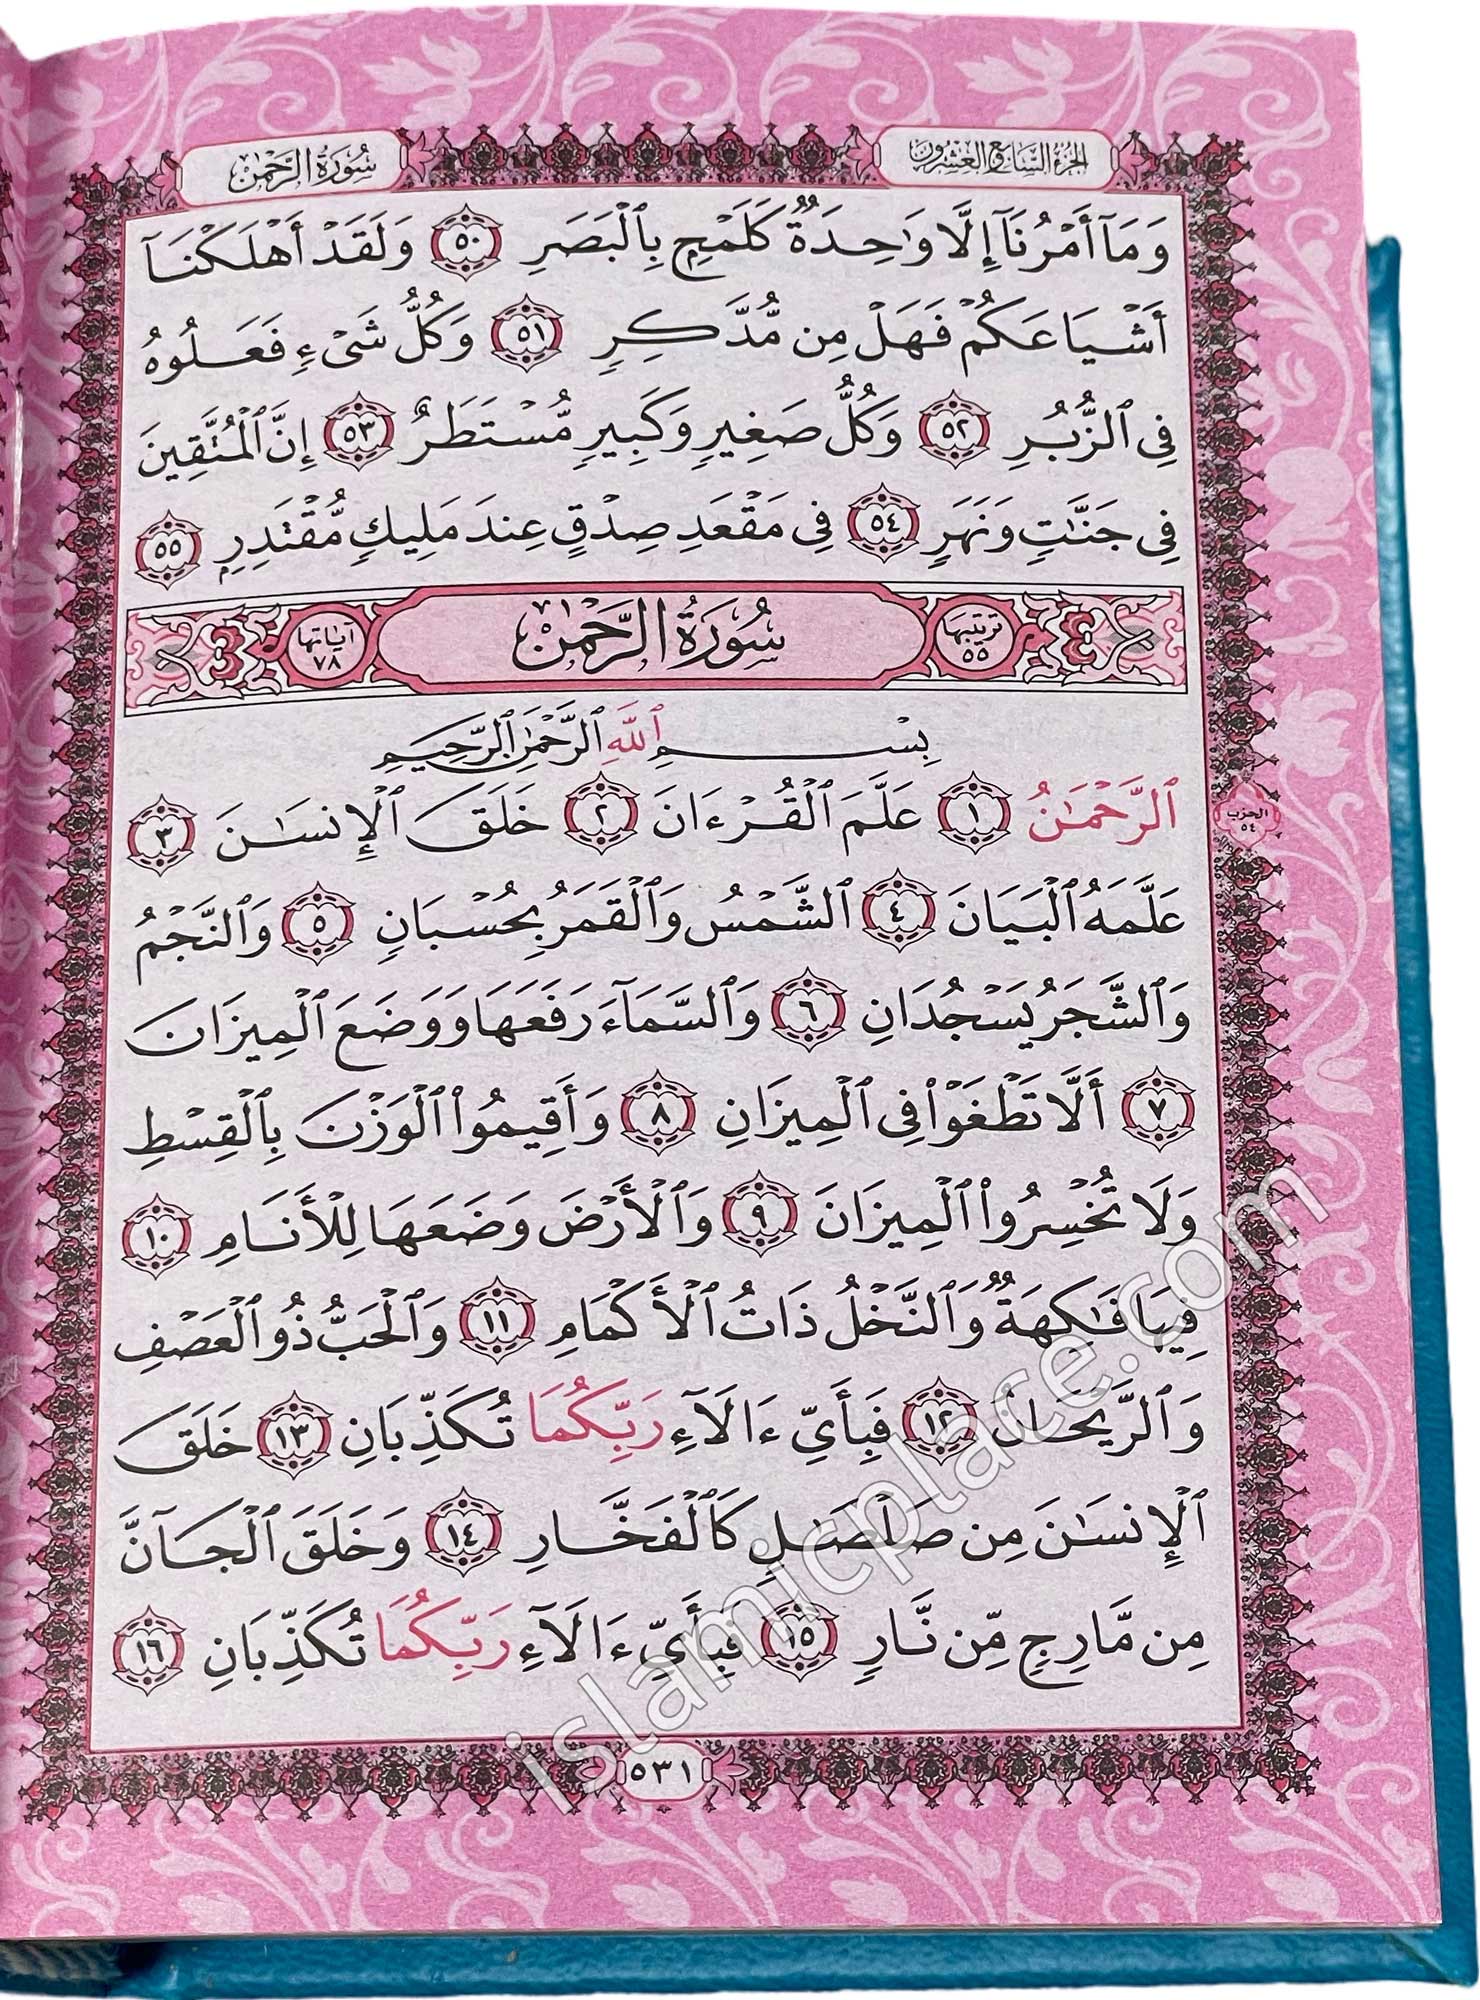 الجزء السابع والعشرون
سورة الرحمن
وَمَآ أَمْرُنَآ إِلَّا وَٰحِدَةٌ كَلَمْحٍۭ بِٱلْبَصَرِ ٥٠ وَلَقَدْ أَهْلَكْنَآ
أَشْيَاعَكُمْ فَهَلْ مِن مُّدَّكِرٍ ٥١ وَكُلُّ شَىْءٍ فَعَلُوهُ
فِى ٱلزُّبُرِ ٥٢ وَكُلُّ صَغِيرٍ وَكَبِيرٍ مُّسْتَطَرٌ ٥٣ إِنَّ ٱلْمُتَّقِينَ
فِى جَنَّٰتٍ وَنَهَرٍ ٥٤ فِى مَقْعَدِ صِدْقٍ عِندَ مَلِيكٍ مُّقْتَدِرٍۭ ٥٥
ترتيبها ٥٥ سُورَةُ الرَّحْمَٰن آياتها ٧٨
بِسْمِ ٱللَّهِ ٱلرَّحْمَٰنِ ٱلرَّحِيمِ
ٱلرَّحْمَٰنُ ١ عَلَّمَ ٱلْقُرْءَانَ ٢ خَلَقَ ٱلْإِنسَٰنَ ٣
عَلَّمَهُ ٱلْبَيَانَ ٤ ٱلشَّمْسُ وَٱلْقَمَرُ بِحُسْبَانٍ ٥ وَٱلنَّجْمُ
وَٱلشَّجَرُ يَسْجُدَانِ ٦ وَٱلسَّمَآءَ رَفَعَهَا وَوَضَعَ ٱلْمِيزَانَ
٧ أَلَّا تَطْغَوْا۟ فِى ٱلْمِيزَانِ ٨ وَأَقِيمُوا۟ ٱلْوَزْنَ بِٱلْقِسْطِ
وَلَا تُخْسِرُوا۟ ٱلْمِيزَانَ ٩ وَٱلْأَرْضَ وَضَعَهَا لِلْأَنَامِ ١٠
فِيهَا فَٰكِهَةٌ وَٱلنَّخْلُ ذَاتُ ٱلْأَكْمَامِ ١١ وَٱلْحَبُّ ذُو ٱلْعَصْفِ
وَٱلرَّيْحَانُ ١٢ فَبِأَىِّ ءَالَآءِ رَبِّكُمَا تُكَذِّبَانِ ١٣ خَلَقَ
ٱلْإِنسَٰنَ مِن صَلْصَٰلٍ كَٱلْفَخَّارِ ١٤ وَخَلَقَ ٱلْجَآنَّ
مِن مَّارِجٍ مِّن نَّارٍ ١٥ فَبِأَىِّ ءَالَآءِ رَبِّكُمَا تُكَذِّبَانِ ١٦
٥٣١
الحزب
٥٤
islamicplace.com